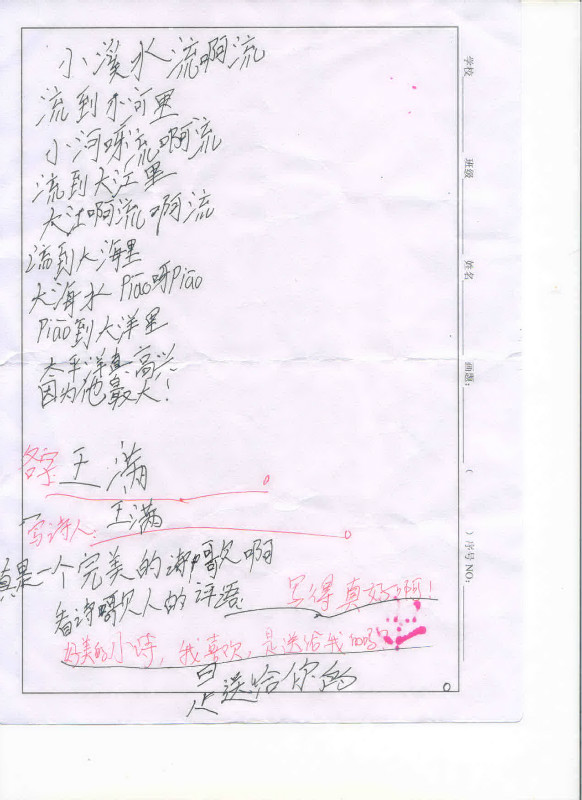 小溪水流啊流
流到小河里
小河呀流啊流
流到大江里
大江啊流啊流
流到大海里
大海水Piāo呀Piāo
Piāo到大洋里
太平洋真高兴
因为他最大！
名字：王满
写诗人：王满
真是一个完美的诗歌啊
看诗歌人的评语：写得真好啊！
好美的小诗，我喜欢，是送给我的吗？
是送给你的
学校 班级 姓名 画题： （ ）序号NO：